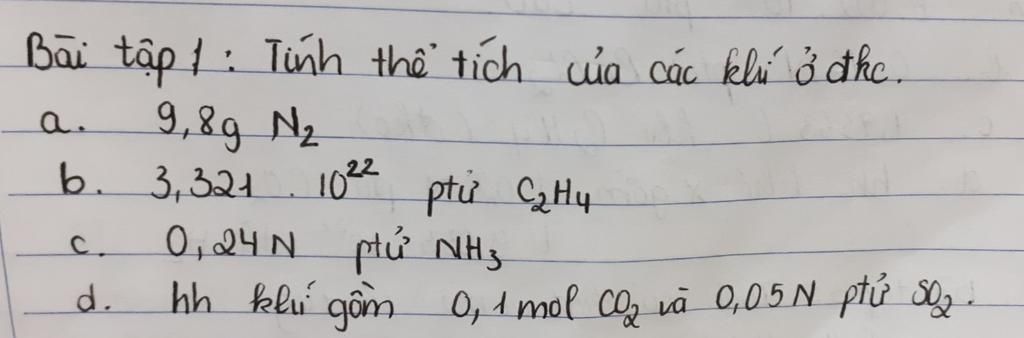 Bài tập 1 : Tính thể tích của các khí ở đkc.
a. 9,8g N₂
b. 3,321 . 10²² ptử C₂H₄
c. 0,24N ptử NH₃
d. hh khí gồm 0,1mol CO₂ và 0,05N ptử SO₂.